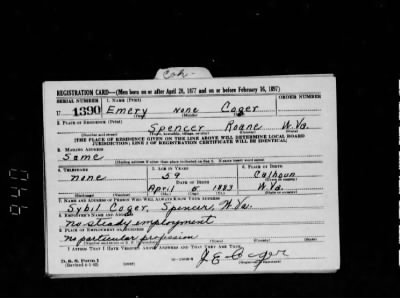 Coh.
REGISTRATION CARD—(Men born on or after April 28, 1877 and on or before February 16, 1897)
SERIAL NUMBER 1. NAME (Print) ORDER NUMBER
U 1390 Emery none Coger
(First) (Middle) (Last)
2. PLACE OF RESIDENCE (Print)
Spencer Roane W.Va.
(Number and street) (Town, township, village, or city) (County) (State)
[THE PLACE OF RESIDENCE GIVEN ON THE LINE ABOVE WILL DETERMINE LOCAL BOARD
JURISDICTION; LINE 2 OF REGISTRATION CERTIFICATE WILL BE IDENTICAL]
3. MAILING ADDRESS
Same
[Mailing address if other than place indicated on line 2. If same insert word same]
4. TELEPHONE 5. AGE IN YEARS 6. PLACE OF BIRTH
none 59 Calhoun
DATE OF BIRTH (Town or county)
April 1883 W.Va.
(Exchange) (Number) (Mo.) (Day) (Yr.) (State or country)
7. NAME AND ADDRESS OF PERSON WHO WILL ALWAYS KNOW YOUR ADDRESS
Sybil Coger, Spencer, W.Va.
8. EMPLOYER'S NAME AND ADDRESS
no steady employment
9. PLACE OF EMPLOYMENT OR BUSINESS
no particular profession
(Number and street or R. F. D. number) (Town) (County) (State)
I AFFIRM THAT I HAVE VERIFIED ABOVE ANSWERS AND THAT THEY ARE TRUE.
D. S. S. Form 1
(Revised 4-1-42) (over)
J E Coger
(Registrant's signature)
940